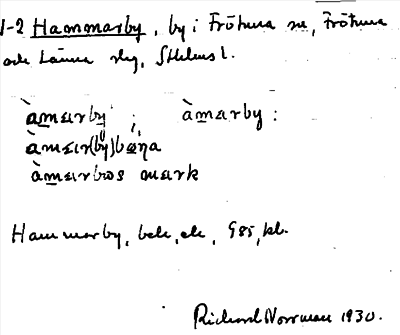 1-2 Hammarby, by i Frötuna sn, Frötuna
och Länna slg, Sthlms l.
àmarby ; àmarby :
àmar(by)bøna
àmarbos mark
Hammarby, bebl, ek, G85, kl.
Richard Norrman 1930.